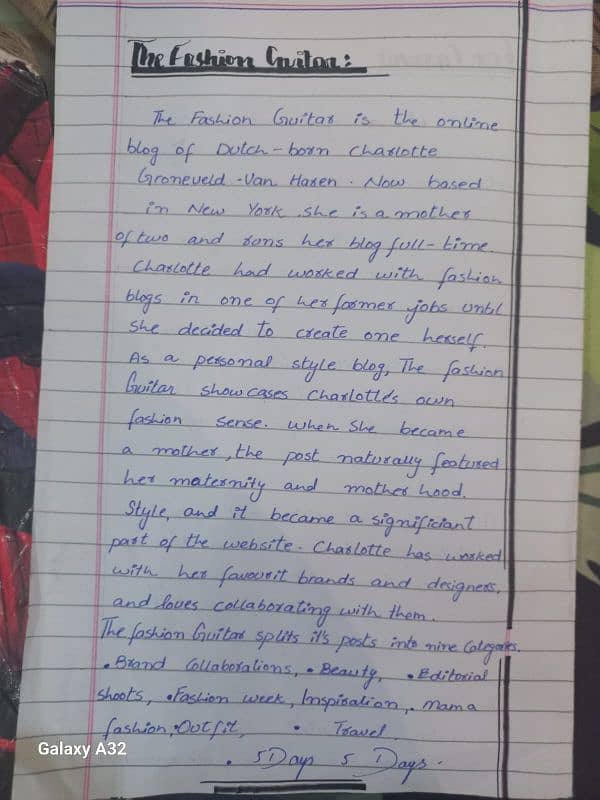 The Fashion Guitar:
The Fashion Guitar is the online
blog of Dutch-born Charlotte
Groneveld-Van Haren. Now based
in New York, she is a mother
of two and runs her blog full-time.
Charlotte had worked with fashion
blogs in one of her former jobs until
she decided to create one herself.
As a personal style blog, The fashion
Guitar showcases Charlotte's own
fashion sense. when She became
a mother, the post naturally featured
her maternity and mother hood.
Style, and it became a significiant
part of the website. Charlotte has worked
with her favourit brands and designers,
and loves collaborating with them.
The fashion Guitar splits it's posts into nine Categories.
• Brand Collaborations, • Beauty, • Editorial
shoots, • Fashion week, Inspiration, • Mama
fashion, • Outfit, • Travel.
• 5 Days 5 Days.
Galaxy A32